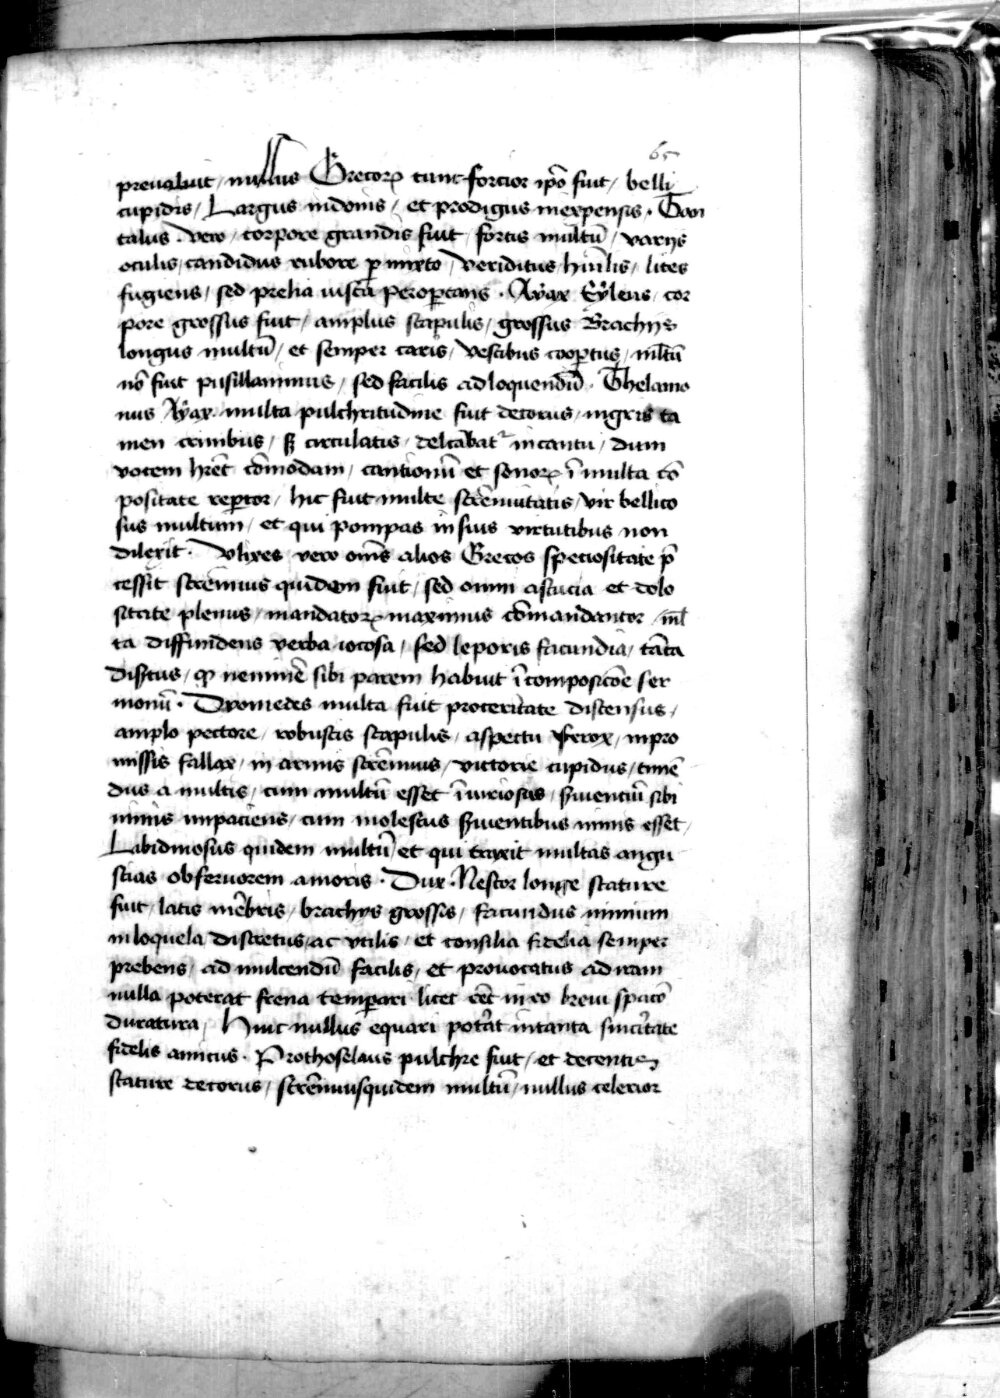 65
preualuit / nullus Grecoꝝ tunc forcior ip̄o fuit / belli
cupidis / Largus in donis / et prodigus in expensis · Tan
talus · vero / corpore grandis fuit / fortis multū / varijs
oculis / candidus rubore ꝑ mixto / veriditus / hūilis / lites
fugiens / sed prelia iusta peroptans · Ayax Eyleus / cor
pore grossus fuit / amplus scapulis / grossus Brachijs
longus multū / et semper caris / vestibus cooptus / mltū
nō fuit pusillanimus / sed facilis ad loquendū · Thelamo
nius Ayax multa pulchritudine fuit decorus / nigris ta
men crinibus / sꝫ circulatus / delcābatᷣ in cantu / dum
vocem hr̄et cōmodam / cantionū et sonoꝝ ī multa cō
positate reptor / hic fuit multe strēnuitatis / vir bellico
sus multum / et qui pompas in suis virtutibus non
dilexit · Vlixes vero om̄s alios Grecos speciositate p̄
cessit strēnuus quidem fuit / sed omni astucia et dolo
sitate plenus / mandatoꝝ maximus cōmandator / ml̄
ta diffundens verba iocosa / sed leporis facundia / tāta
disertus / ꝙ neminē sibi parem habuit ī composicōe ser
monū · Dyomedes multa fuit proceritate distensus /
amplo pectore / robustis scapulis / aspectu ferox / in pro
missis fallax / in armis strēnuus / victorie cupidus / timē
dus a multis / cum multū esset īiuriosus / s̄uientiū sibi
nimis impaciens / cum molestus s̄uientibus nimis esset /
Labidinosus quidem multū / et qui traxit multas angu
stias ob feruorem amoris · Dux · Nestor longe stature
fuit / latis mēbris / brachijs grossis / facundus nimium
in loquela discretus / ac vtilis / et consilia fidelia semper
prebens / ad mulcendū facilis / et prouocatus ad iram
nulla poterat frena temperari licet eēt in eo breui spacō
duratura / Huic nullus equari pot̄at in tanta sinc̄itate
fidelis amicus · Prothoselaus pulchre fuit / et decentis
stature decorus / strēnuus quidem multū / nullus celerior